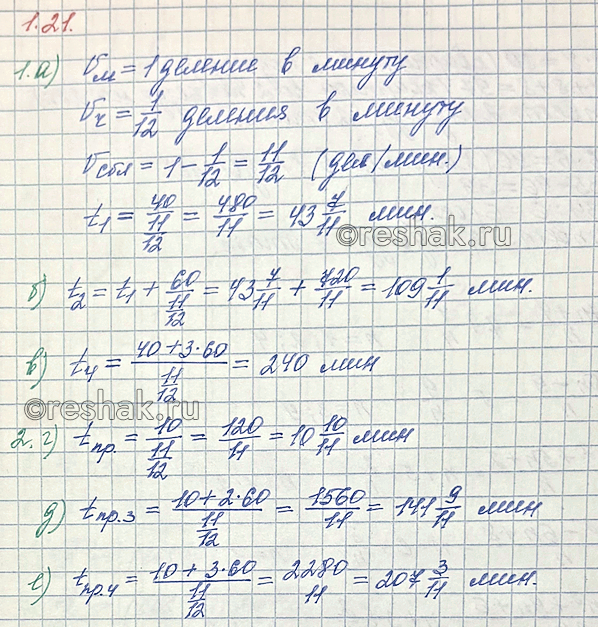 1.21.
1.а) Vм = 1 деление в минуту
Vч = 1/12 деления в минуту
Vсбл = 1 - 1/12 = 11/12 (дел/мин.)
t1 = 40/(11/12) = 480/11 = 43 7/11 мин.
©reshak.ru
б) t2 = t1 + 60/(11/12) = 43 7/11 + 720/11 = 109 1/11 мин.
в) t4 = (40+3·60)/(11/12) = 240 мин
©reshak.ru
2.г) tпр. = 10/(11/12) = 120/11 = 10 10/11 мин
д) tпр.3 = (10+2·60)/(11/12) = 1560/11 = 141 9/11 мин
е) tпр.4 = (10+3·60)/(11/12) = 2280/11 = 207 3/11 мин.